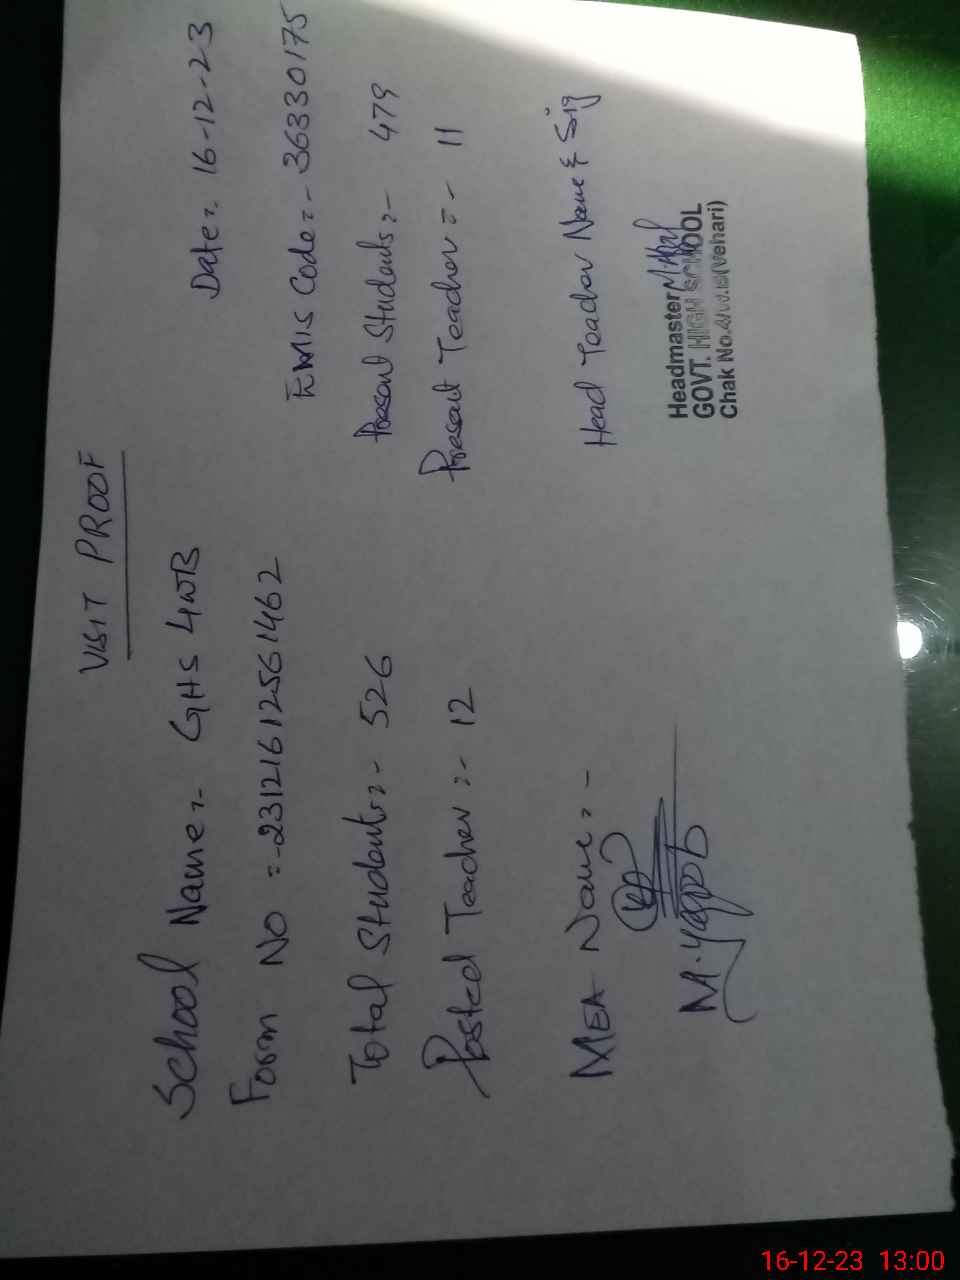 VISIT PROOF
School Name:- GHS 4WB
Date:- 16-12-23
Form No =-23121612561462
EMIS Code:- 36330175
Total Students:- 526
Present Students:- 479
Posted Teacher:- 12
Present Teacher:- 11
MEA Name:-
Head Teacher Name & Sig
M. Yaqoob
Headmaster
GOVT. HIGH SCHOOL
Chak No. (Vehari)
16-12-23 13:00